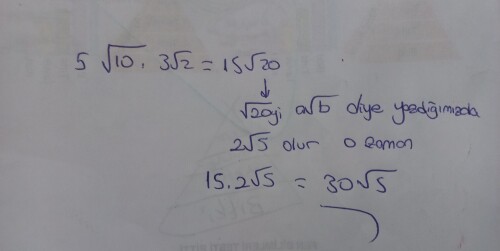 5 √10 . 3√2 = 15√20
↓
√20yi a√b diye yazdığımızda
2√5 olur o zaman
15.2√5 = 30√5